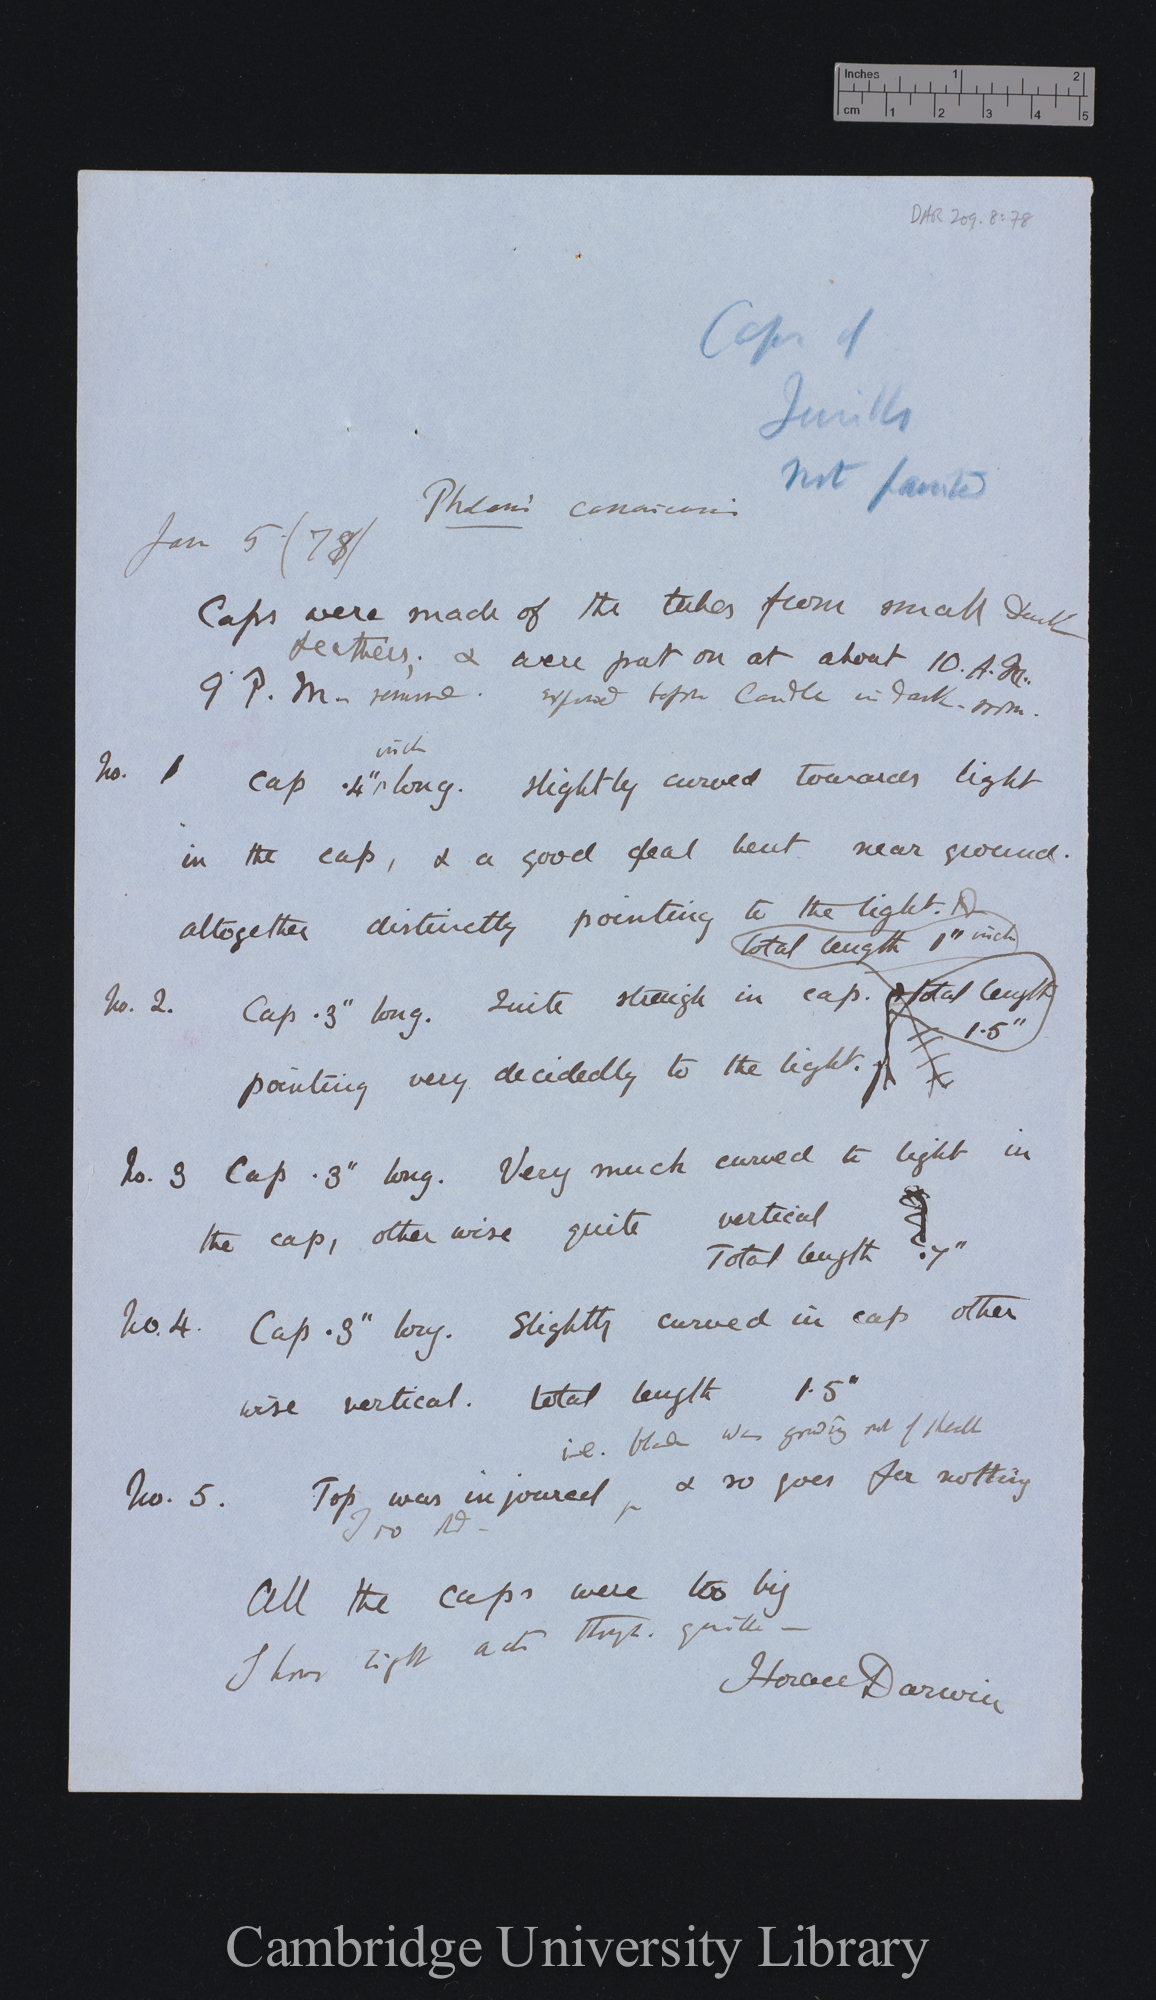 Inches 1 2
cm 1 2 3 4 5
DAR 209.8:78
Caps of
Quills
not painted
Phalaris canariensis
Jan 5 (78)
Caps were made of the tubes from small Duck
feathers, & were put on at about 10. A.M.
9 P. M. removed. exposed before Candle in dark-room.
No. 1 cap .4" inch long. slightly curved towards light
in the cap, & a good deal bent near ground.
altogether distinctly pointing to the light.
total length 1" inch
No. 2. Cap .3" long. Quite straigh in cap. total length
1.5"
pointing very decidedly to the light.
No. 3 Cap .3" long. Very much curved to light in
the cap, other wise quite vertical
Total length .7"
No. 4. Cap .3" long. Slightly curved in cap other
wise vertical. total length 1.5"
i.e. blade was growing out of sheath
No. 5. Top was injoured, & so goes for nothing
All the caps were too big
light acts through. quills —
Horace Darwin
Cambridge University Library